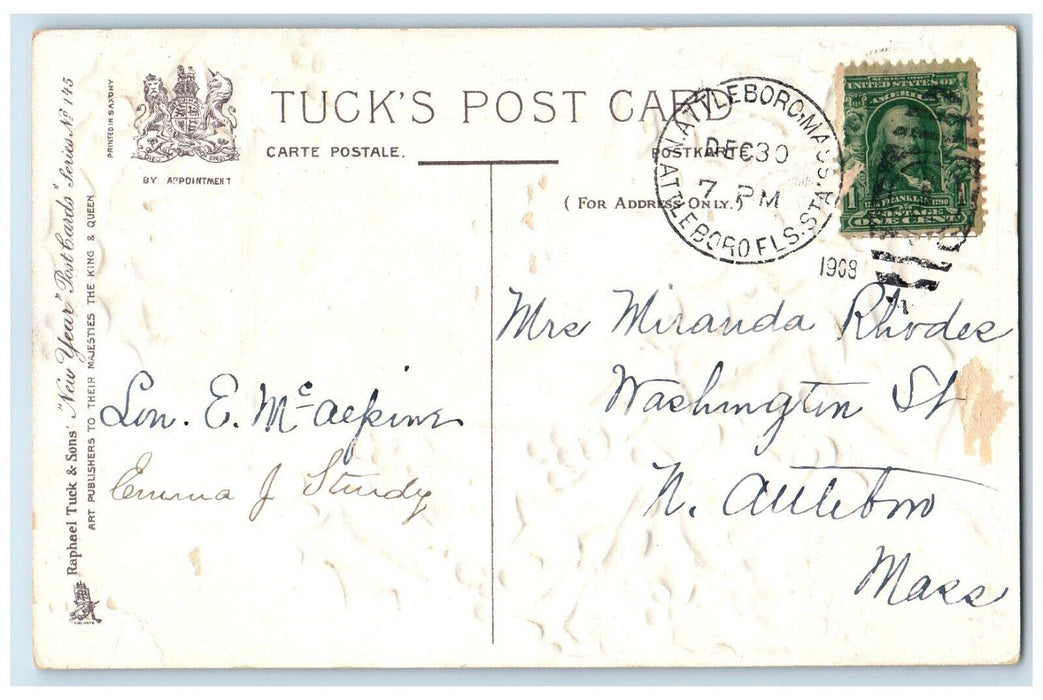 TUCK'S POST CARD
CARTE POSTALE.
POSTKARTE
(FOR ADDRESS ONLY.)
BY APPOINTMENT
PRINTED IN SAXONY
Raphael Tuck & Sons' "New Year" Post Cards Series No 145
ART PUBLISHERS TO THEIR MAJESTIES THE KING & QUEEN
N. ATTLEBORO, MASS.
DEC 30
7 PM
ATTLEBORO FLS. STA.
1908
SERIES 1902
UNITED STATES OF
AMERICA
FRANKLIN 1790
1 1
POSTAGE
ONE CENT
Mrs Miranda Rhodes
Washington St
N. Attleboro
Mass
Lon. E. Mc
Emma J Sturdy